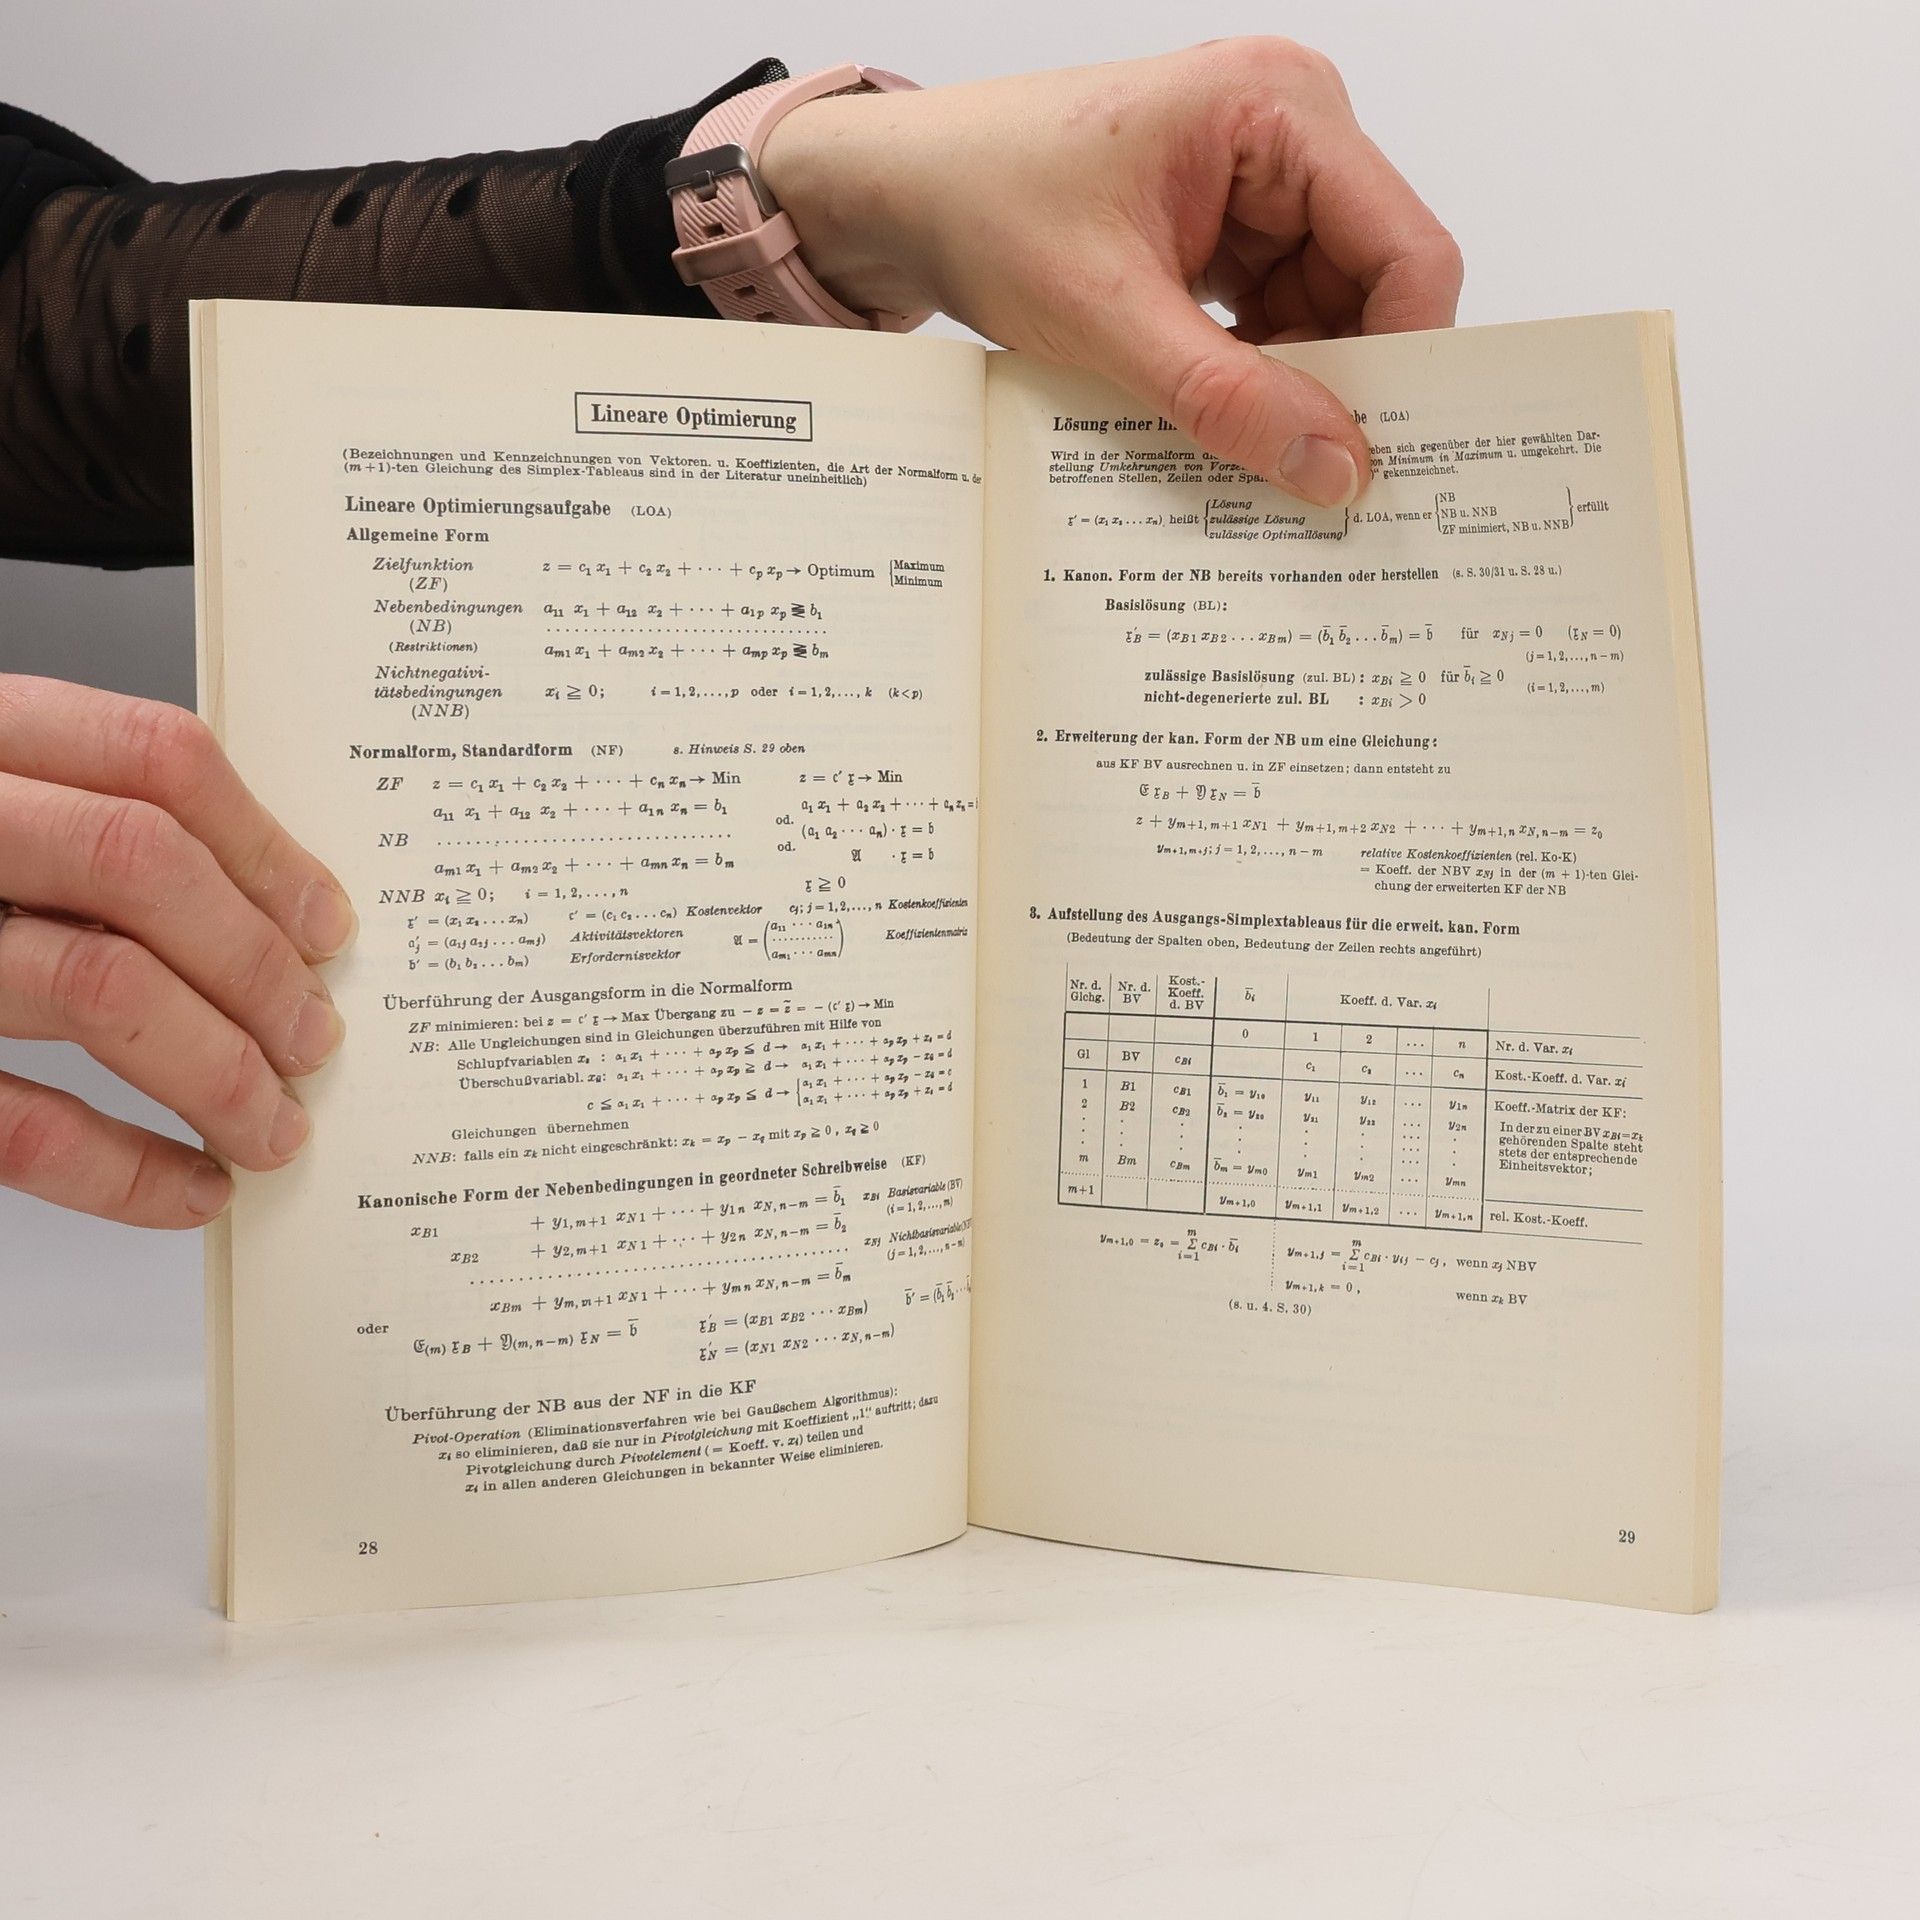 Lineare Optimierung
(Bezeichnungen und Kennzeichnungen von Vektoren. u. Koeffizienten, die Art der Normalform u. der
(m+1)-ten Gleichung des Simplex-Tableaus sind in der Literatur uneinheitlich)
Lineare Optimierungsaufgabe (LOA)
Allgemeine Form
Zielfunktion z = c₁ x₁ + c₂ x₂ + · · · + cₚ xₚ → Optimum {Maximum
(ZF) Minimum
Nebenbedingungen a₁₁ x₁ + a₁₂ x₂ + · · · + a₁ₚ xₚ ⋛ b₁
(NB) . . . . . . . . . . . . . . . . . . . . . . . . . . . . . .
(Restriktionen) aₘ₁ x₁ + aₘ₂ x₂ + · · · + aₘₚ xₚ ⋛ bₘ
Nichtnegativi-
tätsbedingungen xᵢ ≧ 0; i = 1, 2, . . . , p oder i = 1, 2, . . . , k (k < p)
(NNB)
Normalform, Standardform (NF) s. Hinweis S. 29 oben
ZF z = c₁ x₁ + c₂ x₂ + · · · + cₙ xₙ → Min z = 𝔠′ 𝔵 → Min
a₁₁ x₁ + a₁₂ x₂ + · · · + a₁ₙ xₙ = b₁ 𝔞₁ x₁ + 𝔞₂ x₂ + · · · + 𝔞ₙ xₙ =
od. (𝔞₁ 𝔞₂ · · · 𝔞ₙ) · 𝔵 = 𝔟
NB . . . . . . . . . . . . . . . . . . . . . . . . . . . .
od. 𝔄 · 𝔵 = 𝔟
aₘ₁ x₁ + aₘ₂ x₂ + · · · + aₘₙ xₙ = bₘ
NNB xᵢ ≧ 0; i = 1, 2, . . . , n 𝔵 ≧ 0
𝔵′ = (x₁ x₂ . . . xₙ) 𝔠′ = (c₁ c₂ . . . cₙ) Kostenvektor cⱼ; j = 1, 2, . . . , n Kostenkoeffizienten
𝔞′ⱼ = (a₁ⱼ a₂ⱼ . . . aₘⱼ) Aktivitätsvektoren 𝔄 = (a₁₁ · · · a₁ₙ . . . . . . . . . . aₘ₁ · · · aₘₙ) Koeffizientenmatrix
𝔟′ = (b₁ b₂ . . . bₘ) Erfordernisvektor
Überführung der Ausgangsform in die Normalform
ZF minimieren: bei z = 𝔠′ 𝔵 → Max Übergang zu − z = z̃ = − (𝔠′ 𝔵) → Min
NB: Alle Ungleichungen sind in Gleichungen überzuführen mit Hilfe von
Schlupfvariablen xₛ : a₁ x₁ + · · · + aₚ xₚ ≦ d → a₁ x₁ + · · · + aₚ xₚ + xₛ = d
Überschußvariabl. x_ü: a₁ x₁ + · · · + aₚ xₚ ≧ d → a₁ x₁ + · · · + aₚ xₚ − x_ü = d
c ≦ a₁ x₁ + · · · + aₚ xₚ ≦ d → {a₁ x₁ + · · · + aₚ xₚ − x_ü = c
a₁ x₁ + · · · + aₚ xₚ + xₛ = d
Gleichungen übernehmen
NNB: falls ein xₖ nicht eingeschränkt: xₖ = xₚ − x_q mit xₚ ≧ 0, x_q ≧ 0
Kanonische Form der Nebenbedingungen in geordneter Schreibweise (KF)
x_B1 + y₁,ₘ₊₁ x_N1 + · · · + y₁ₙ x_N,n−m = b̄₁ x_Bi Basisvariable (BV)
(i = 1, 2, . . . , m)
x_B2 + y₂,ₘ₊₁ x_N1 + · · · + y₂ₙ x_N,n−m = b̄₂
. . . . . . . . . . . . . . . . . . . . . . . . . . . . . . x_Nj Nichtbasisvariable
(j = 1, 2, . . . , n−m)
x_Bm + yₘ,ₘ₊₁ x_N1 + · · · + yₘₙ x_N,n−m = b̄ₘ
oder 𝔈₍ₘ₎ 𝔵_B + 𝔜₍m,n−m₎ 𝔵_N = 𝔟̄ 𝔵′_B = (x_B1 x_B2 · · · x_Bm) 𝔟̄′ = (b̄₁ b̄₂ . . .
𝔵′_N = (x_N1 x_N2 · · · x_N,n−m)
Überführung der NB aus der NF in die KF
Pivot-Operation (Eliminationsverfahren wie bei Gaußschem Algorithmus):
xᵢ so eliminieren, daß sie nur in Pivotgleichung mit Koeffizient „1“ auftritt; dazu
Pivotgleichung durch Pivotelement (= Koeff. v. xᵢ) teilen und
xᵢ in allen anderen Gleichungen in bekannter Weise eliminieren.
28
Lösung einer be (LOA)
Wird in der Normalform eben sich gegenüber der hier gewählten Dar-
stellung Umkehrungen von von Minimum in Maximum u. umgekehrt. Die
betroffenen Stellen, Zeilen oder “ gekennzeichnet.
𝔵′ = (x₁ x₂ . . . xₙ) heißt {Lösung / zulässige Lösung / zulässige Optimallösung} d. LOA, wenn er {NB / NB u. NNB / ZF minimiert, NB u. NNB} erfüllt
1. Kanon. Form der NB bereits vorhanden oder herstellen (s. S. 30/31 u. S. 28 u.)
Basislösung (BL):
𝔵′_B = (x_B1 x_B2 . . . x_Bm) = (b̄₁ b̄₂ . . . b̄ₘ) = 𝔟̄ für x_Nj = 0 (𝔵_N = 0)
(j = 1, 2, . . . , n − m)
zulässige Basislösung (zul. BL) : x_Bi ≧ 0 für b̄ᵢ ≧ 0
(i = 1, 2, . . . , m)
nicht-degenerierte zul. BL : x_Bi > 0
2. Erweiterung der kan. Form der NB um eine Gleichung:
aus KF BV ausrechnen u. in ZF einsetzen; dann entsteht zu
𝔈 𝔵_B + 𝔜 𝔵_N = 𝔟̄
z + yₘ₊₁,ₘ₊₁ x_N1 + yₘ₊₁,ₘ₊₂ x_N2 + · · · + yₘ₊₁,ₙ x_N,n−m = z₀
yₘ₊₁,ₘ₊ⱼ; j = 1, 2, . . . , n − m relative Kostenkoeffizienten (rel. Ko-K)
= Koeff. der NBV x_Nj in der (m + 1)-ten Glei-
chung der erweiterten KF der NB
3. Aufstellung des Ausgangs-Simplextableaus für die erweit. kan. Form
(Bedeutung der Spalten oben, Bedeutung der Zeilen rechts angeführt)
Nr. d. Glchg. Nr. d. BV Kost.-Koeff. d. BV b̄ᵢ Koeff. d. Var. xᵢ
0 1 2 . . . n Nr. d. Var. xᵢ
Gl BV c_Bi c₁ c₂ . . . cₙ Kost.-Koeff. d. Var. xᵢ
1 B1 c_B1 b̄₁ = y₁₀ y₁₁ y₁₂ . . . y₁ₙ Koeff.-Matrix der KF:
2 B2 c_B2 b̄₂ = y₂₀ y₂₁ y₂₂ . . . y₂ₙ In der zu einer BV x_Bi = xₖ
. . . . . . . . . . gehörenden Spalte steht
. . . . . . . . . . stets der entsprechende
m Bm c_Bm b̄ₘ = yₘ₀ yₘ₁ yₘ₂ . . . yₘₙ Einheitsvektor;
m+1 yₘ₊₁,₀ yₘ₊₁,₁ yₘ₊₁,₂ . . . yₘ₊₁,ₙ rel. Kost.-Koeff.
yₘ₊₁,₀ = z₀ = Σᵢ₌₁ᵐ c_Bi · b̄ᵢ yₘ₊₁,ⱼ = Σᵢ₌₁ᵐ c_Bi · yᵢⱼ − cⱼ, wenn xⱼ NBV
yₘ₊₁,ₖ = 0, wenn xₖ BV
(s. u. 4. S. 30)
29